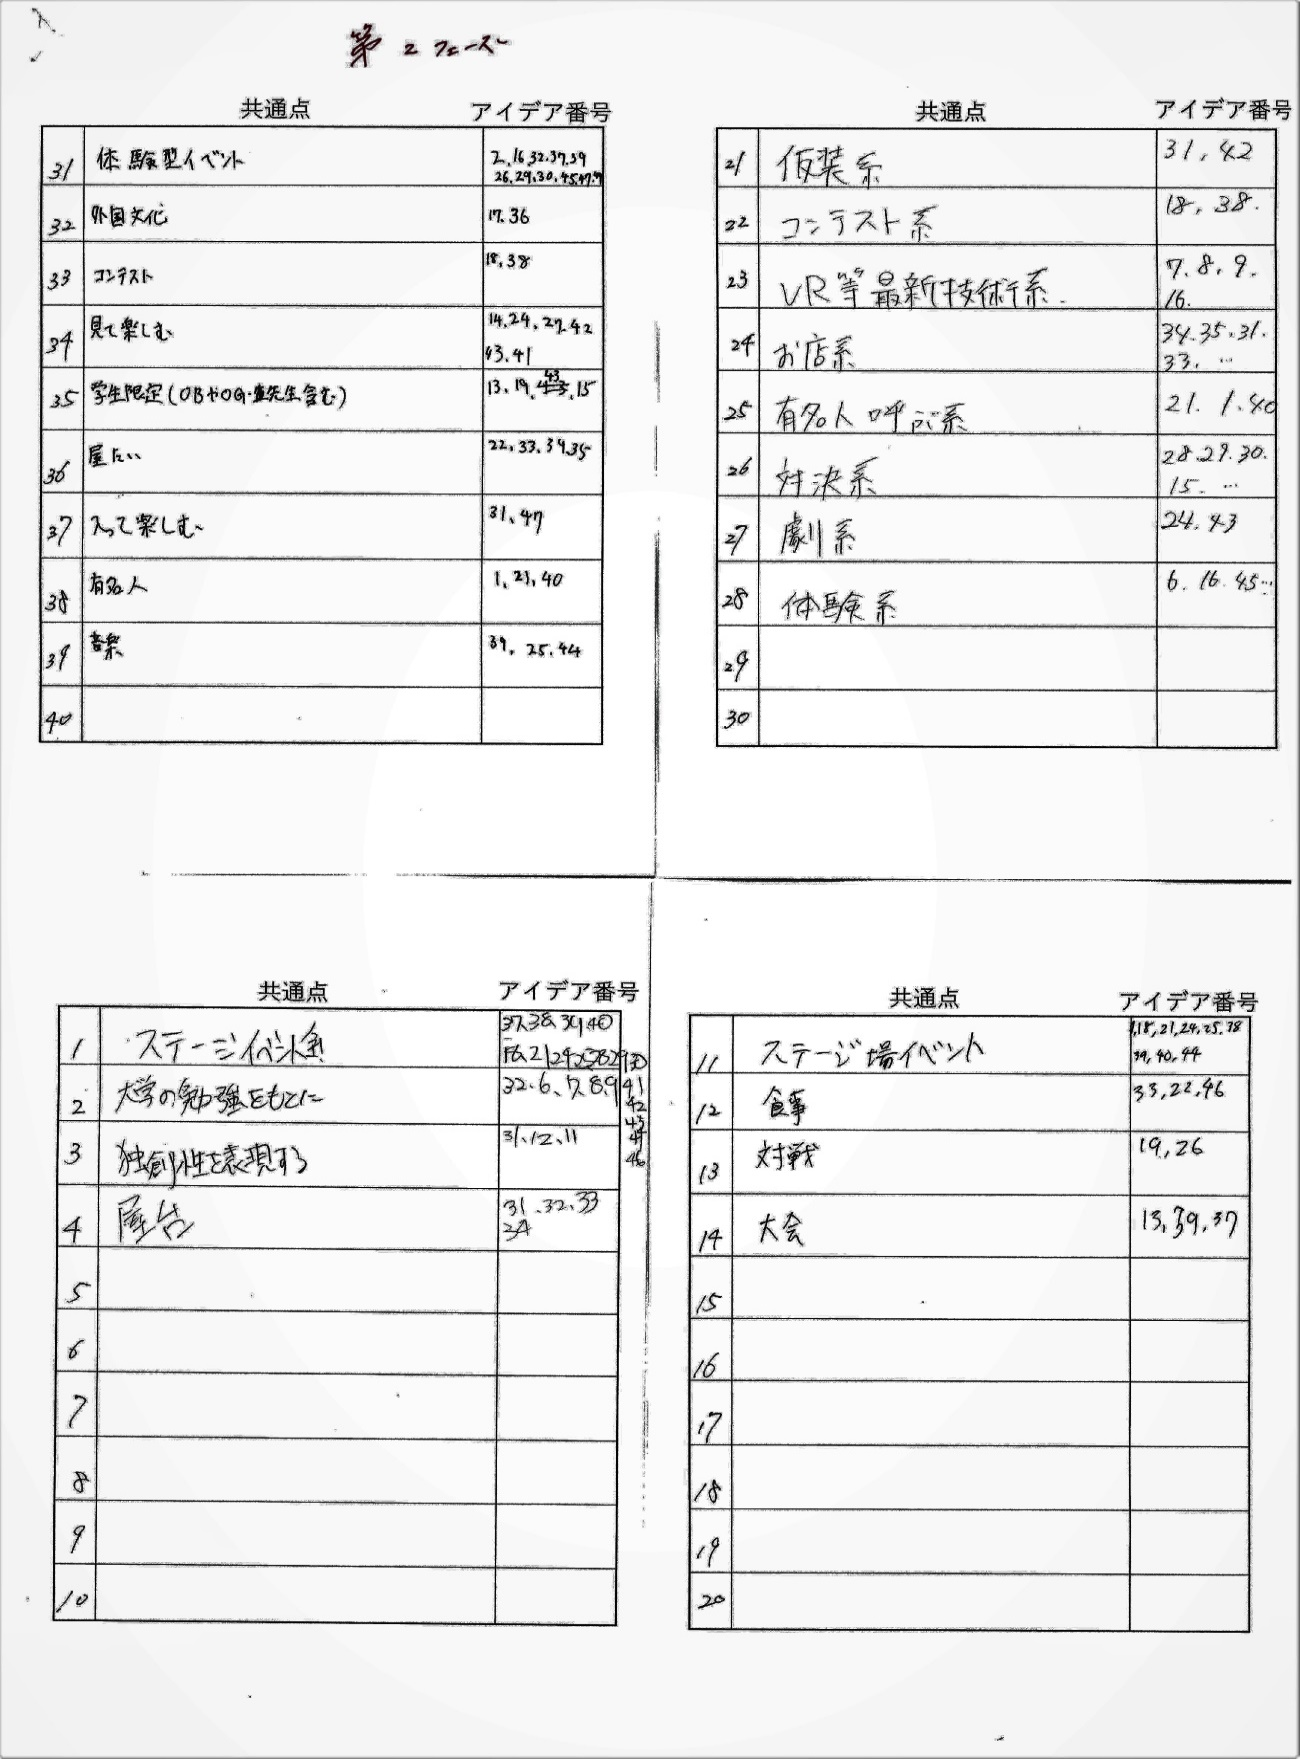 第2フェーズ
共通点 アイデア番号
31 体験型イベント 2.16.32.37.39
26.29.30.45.47.
32 外国文化 17.36
33 コンテスト 18.38
34 見て楽しむ 14.24.27.42
43.41
35 学生限定(OBやOG・先生含む) 13.19.43.15
36 屋たい 22.33.34.35
37 入って楽しむ 31.47
38 有名人 1.21.40
39 音楽 39.25.44
40
共通点 アイデア番号
21 仮装系 31,42
22 コンテスト系 18,38.
23 VR等最新技術系. 7.8.9.
16.
24 お店系 34.35.31.
33. …
25 有名人呼ぶ系 21. 1.40
26 対決系 28.29.30.
15. …
27 劇系 24.43
28 体験系 6.16.45…
29
30
共通点 アイデア番号
1 ステージイベント 37.38.39.40
2 大学の勉強をもとに 32.6.7.8.9
41
42
3 独創性を表現する 31.12.11
46
4 屋台 31.32.33
34
5
6
7
8
9
10
共通点 アイデア番号
11 ステージ場イベント 1,18,21,24,25,38
39,40,44
12 食事 33,22,46
13 対戦 19,26
14 大会 13,39,37
15
16
17
18
19
20